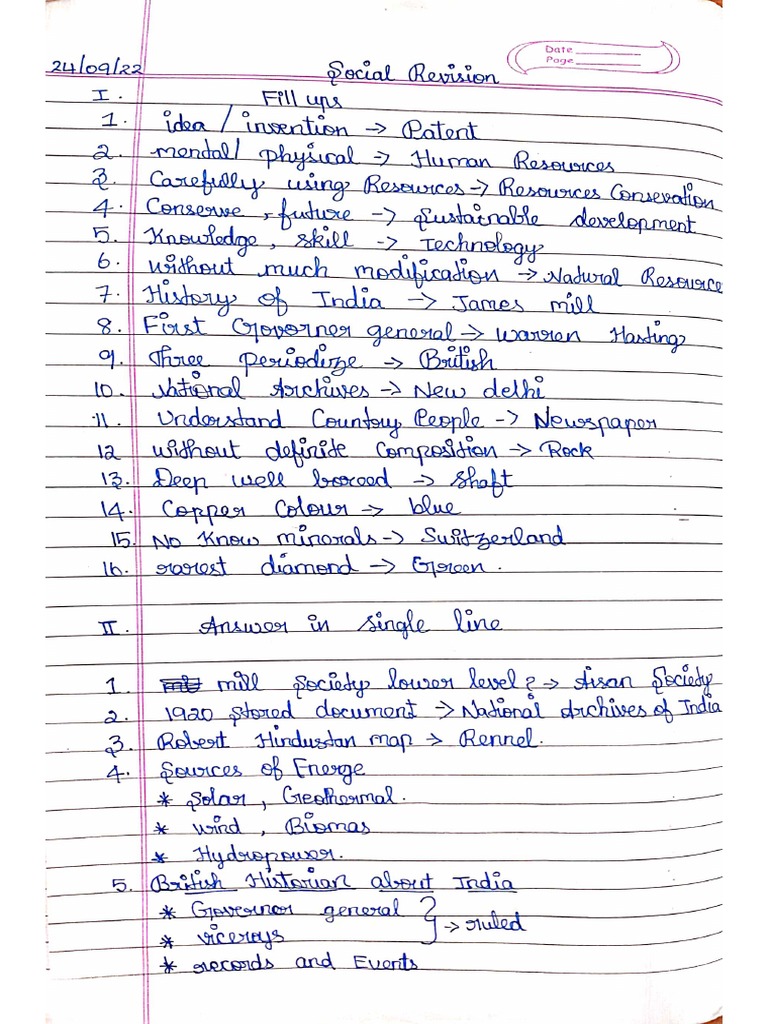 Date
Page
24/09/22 Social Revision
I. Fill ups
1. idea / invention → Patent
2. mental / physical → Human Resources
3. Carefully using Resources → Resources Consevation
4. Conserve, future → Sustainable development
5. Knowledge, skill → Technology
6. without much modification → Natural Resource
7. History of India → James mill
8. First Governer general → Warren Hasting
9. Three periodize → British
10. National Archives → New delhi
11. Understand Country People → Newspaper
12 without definite Composition → Rock
13. Deep well boreed → Shaft
14. Copper Colour → blue
15. No Know minerals → Switzerland
16. rarest diamond → Green.
II. Answer in single line
1. mill Society lower level? → Aisan Society
2. 1920 stored document → National Archives of India
3. Robert Hindustan map → Rennel.
4. Sources of Energe
* Solar, Geothermal.
* wind, Biomas
* Hydropower.
5. British Historian about India
* Governor general } → ruled
* viceroys
* records and Events